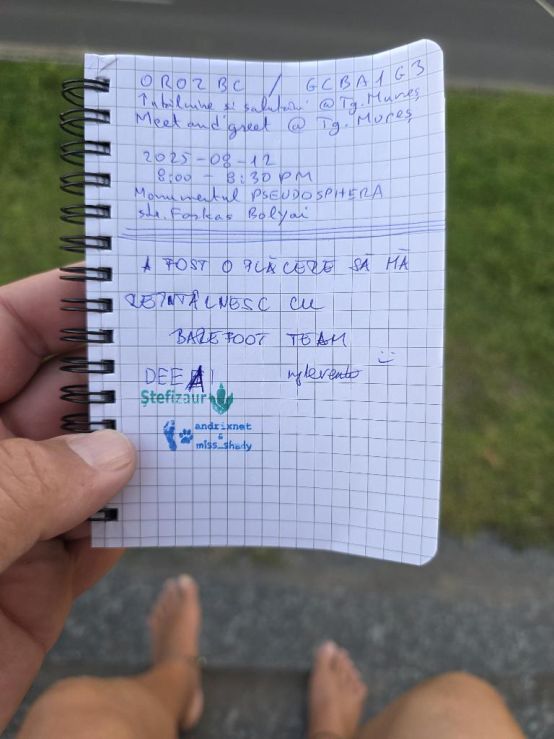 OR02BC / GCBA1G3
Întâlnire și salutări @ Tg. Mureș
Meet and greet @ Tg. Mureș
2025-08-12
8:00 - 8:30 PM
Monumentul PSEUDOSPHERA
str. Farkas Bolyai
A FOST O PLĂCERE SĂ MĂ
REÎNTÂLNESC CU
BAREFOOT TEAM
:)
DEEA!
Ștefizaur
andrixnet
&
miss_shady